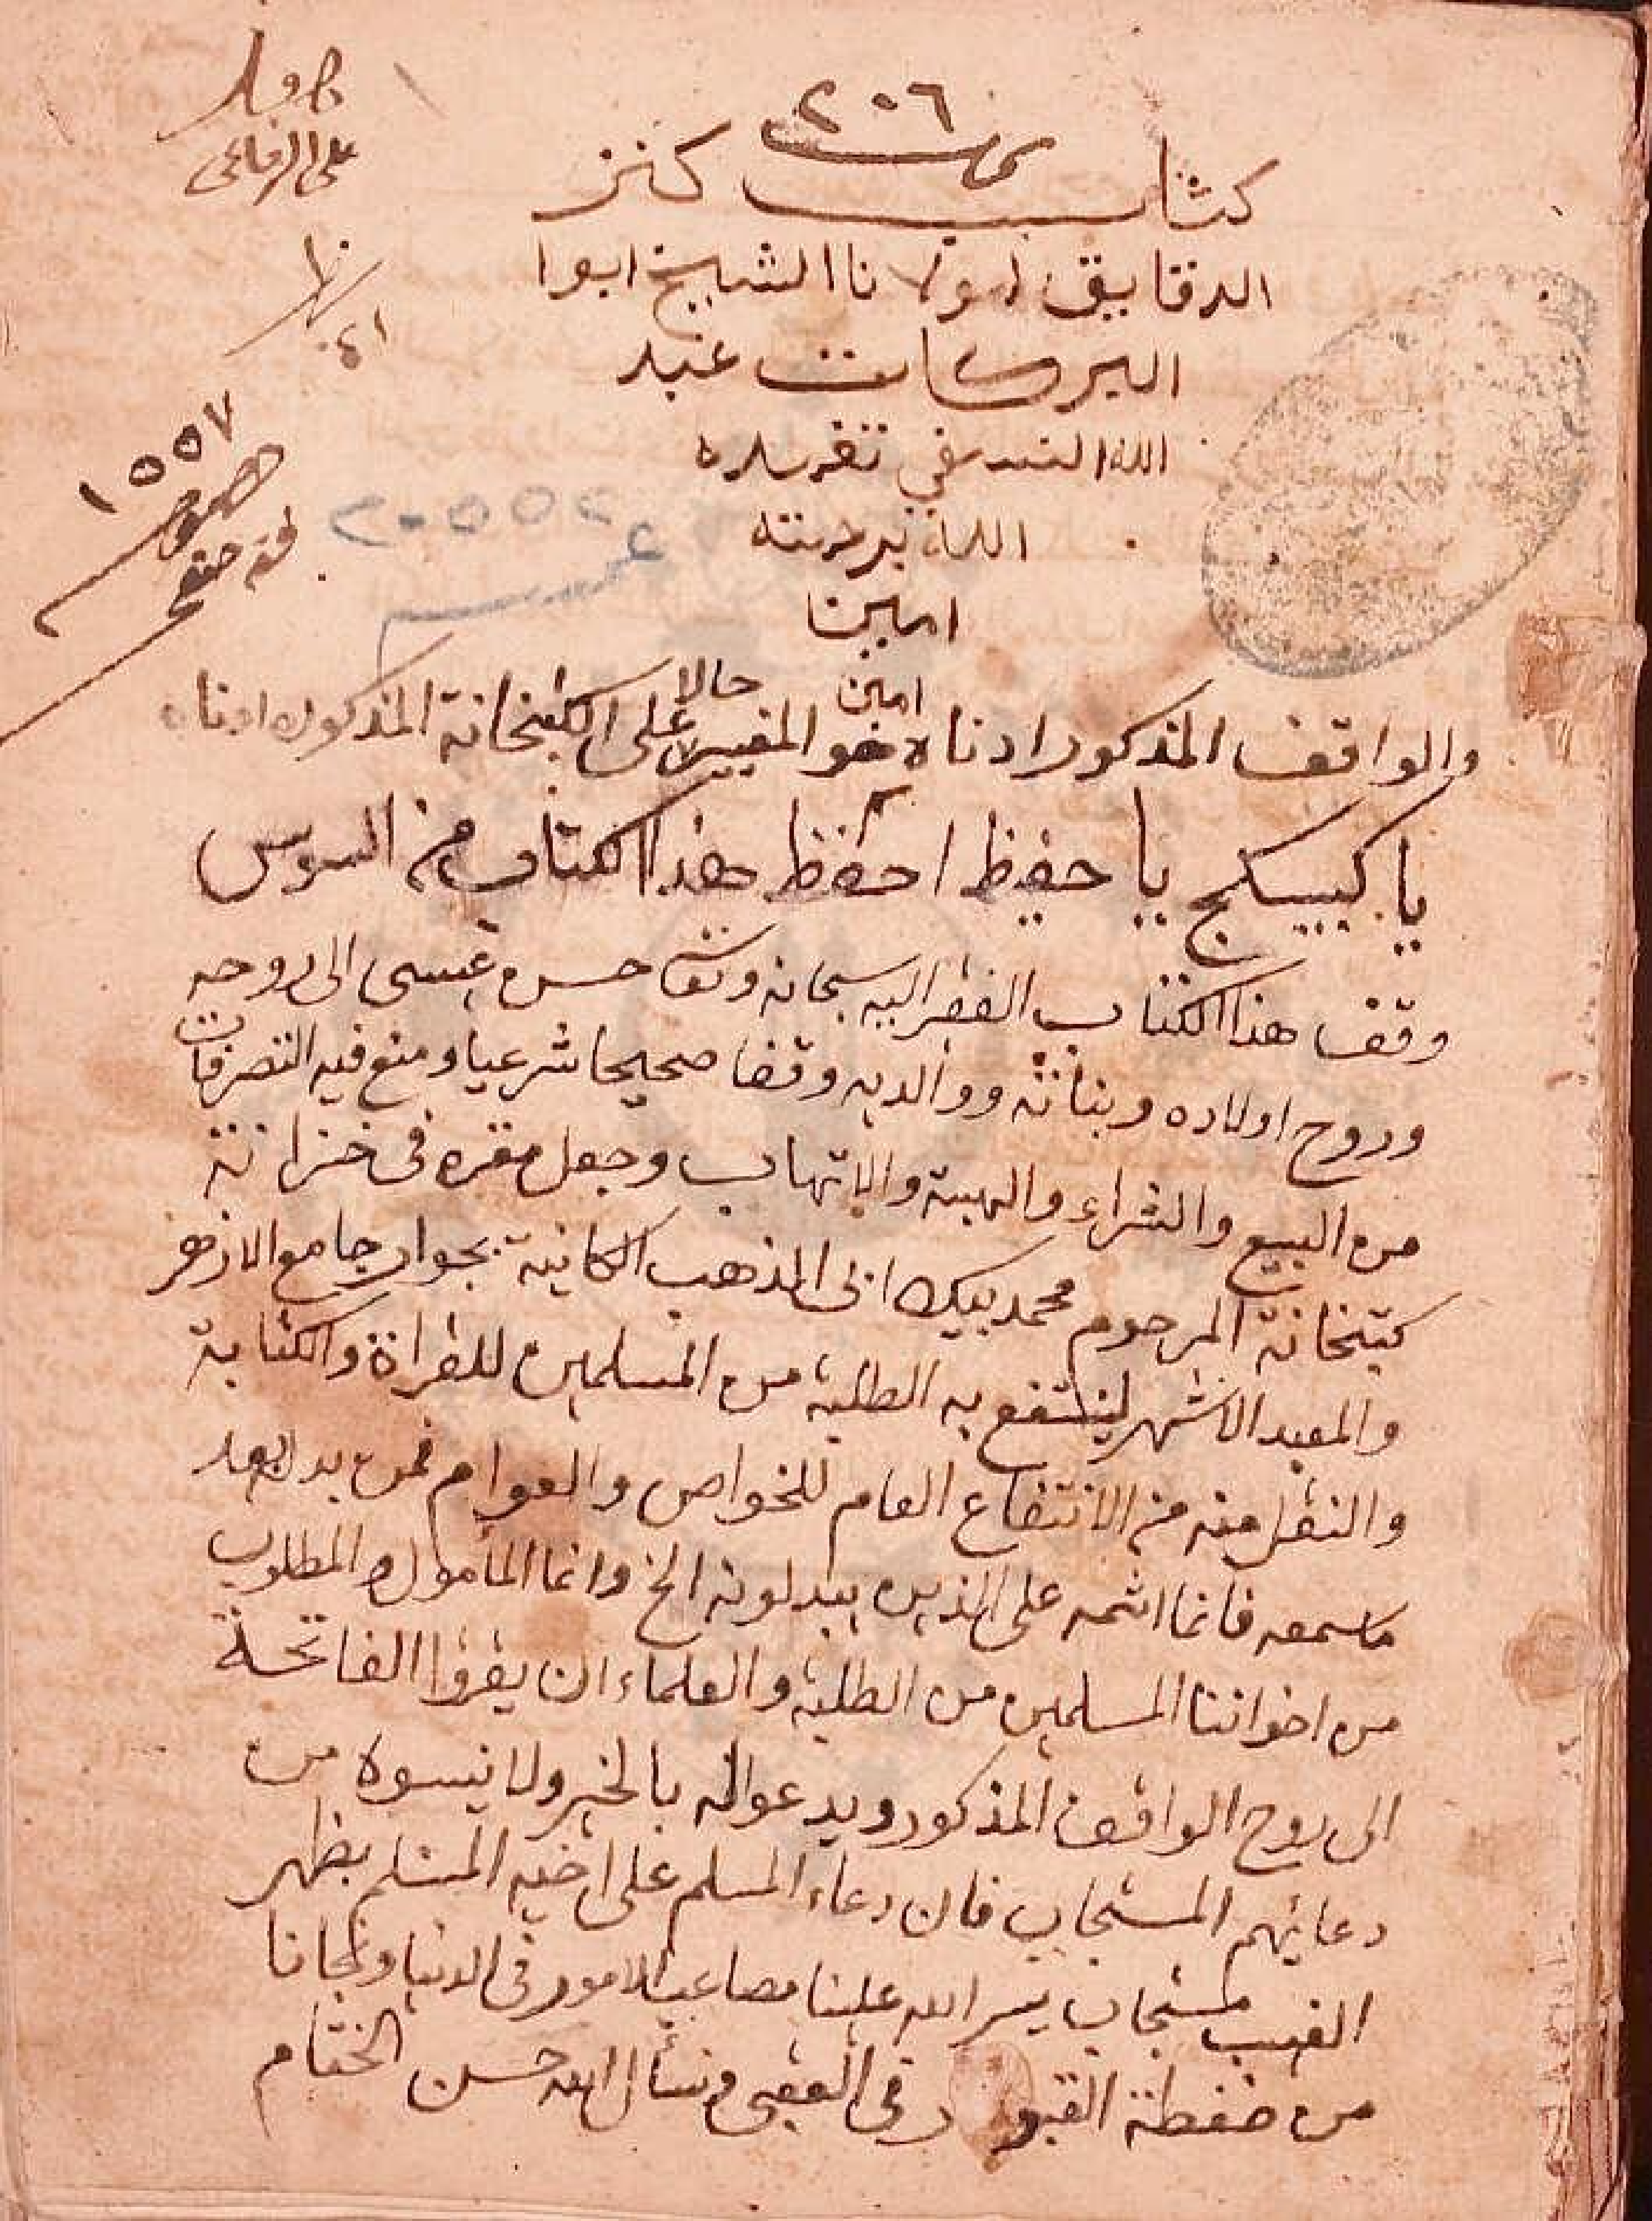 ٢٠٦
كتاب كنز
الدقايق لمولانا الشيخ ابوا
البركات عبد
الله النسفي تغمده
الله برحمته
امين
امين
علي الرفاعى
١٥٥٧
فقه حنفى
٢٠٥٥٢
والواقف المذكور ادناه هو المغير حالا على الكتبخانة المذكوره ادناه
يا كبيكج يا حفيظ احفظ هذا الكتاب من السوس
وقف هذا الكتاب الفقير اليه سبحانه وتعا حسن عيسى الى روحه
وروح اولاده وبناته ووالديه وقفا صحيحا شرعيا ومنع فيه التصرفات
من البيع والشراء والهبة والاتهاب وجعل مقره فى خزانة
كتبخانة المرحوم محمد بيك ابى الذهب الكائنة بجوار جامع الازهر
والمعبد الاشهر لينتفع به الطلبة من المسلمين للقراة والكتابة
والنقل منه من الانتفاع العام للخواص والعوام فمن بدله بعد
ما سمعه فانما اثمه على الذين يبدلونه الخ وانما المأمول والمطلوب
من اخواننا المسلمين من الطلبة والعلماء ان يقرؤا الفاتحة
الى روح الواقف المذكور ويدعواله بالخير ولا نيسوه من
دعائهم المستجاب فان دعاء المسلم على اخيه المسلم بظهر
الغيب مستجاب يسر الله علينا مصاعب الامور فى الدنيا ونجانا
من ضغطة القبور فى العقبى ونسأل الله حسن الختام